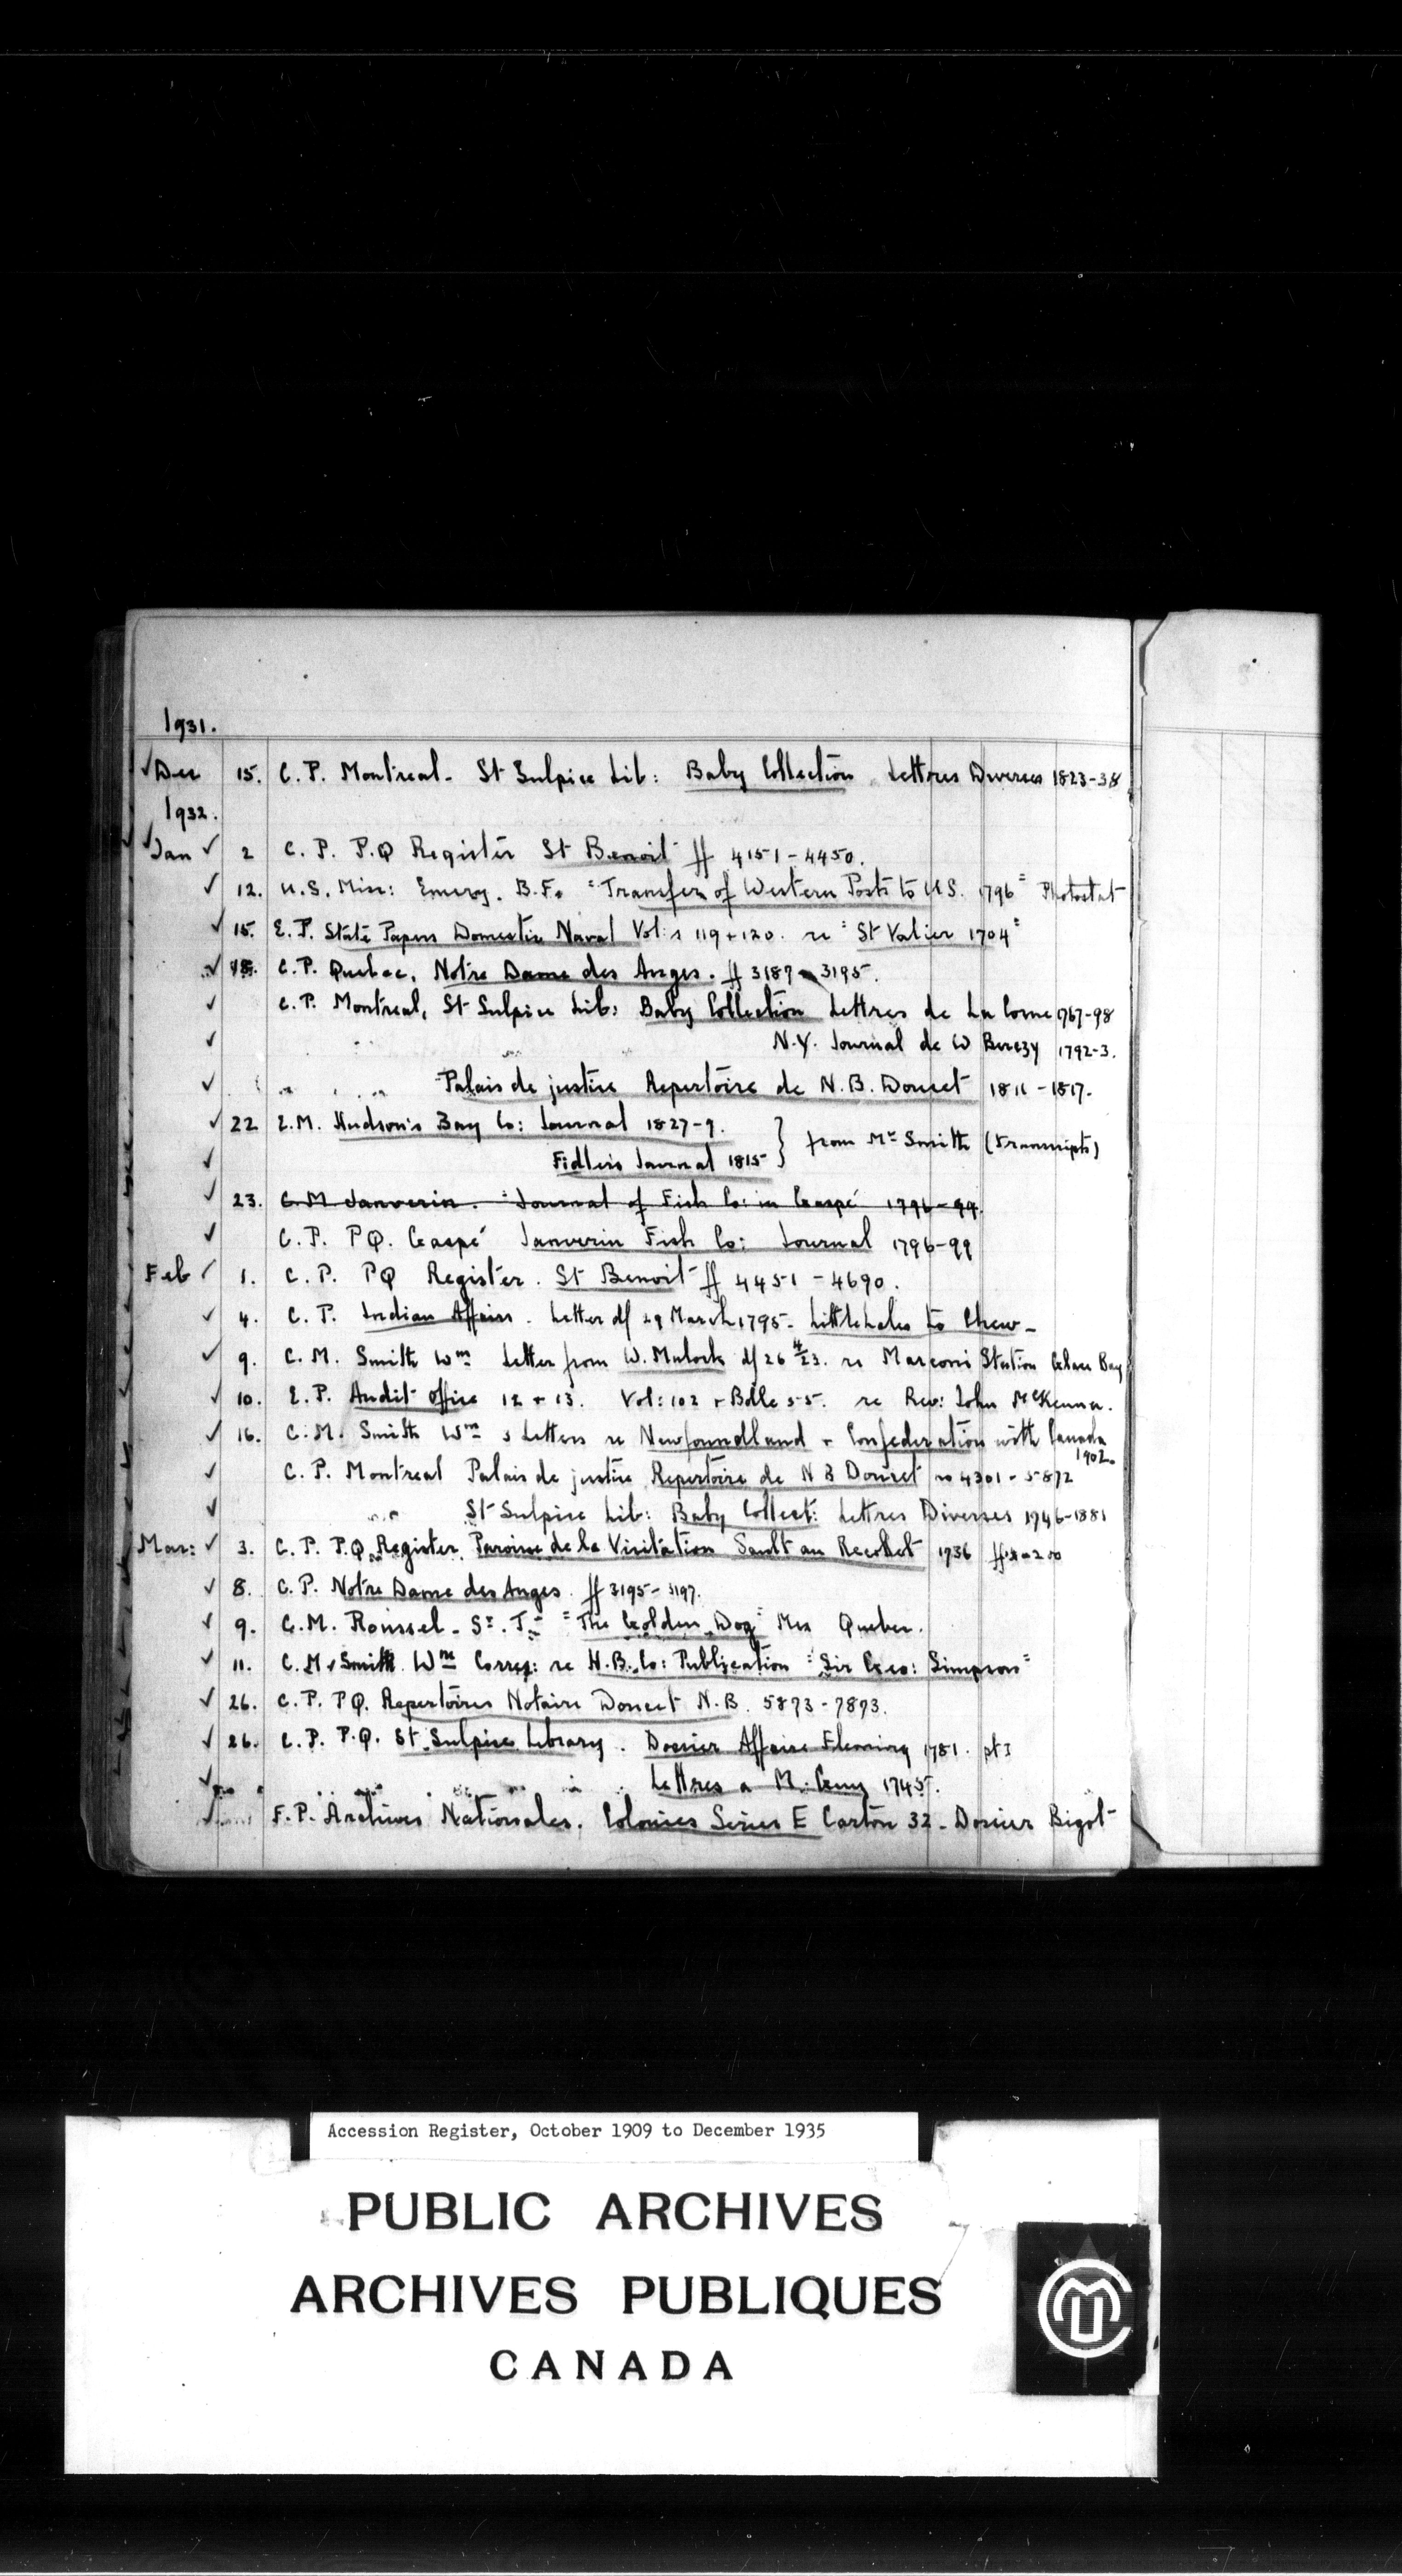 1931.
Dec 15. C. P. Montreal - St Sulpice Lib: Baby Collection Lettres Diverses 1823-38
1932.
Jan 2 C. P. P.Q Register St Benoit ff 4151-4450.
12. U.S. Misc: Emery. B.F. "Transfer of Western Posts to U.S. 1796" Photostat
15. E.P. State Papers Domestic Naval Vol: s 119+120. re "St Valier 1704"
18. C.P. Quebec, Notre Dame des Anges. ff 3187-3195.
C.P. Montreal, St Sulpice Lib: Baby Collection Lettres de La Corne 1767-98
N.Y. Journal de W Berczy 1792-3.
" " " Palais de justice Repertoire de N.B. Doucet 1811-1817.
22 E.M. Hudson's Bay Co: Journal 1827-9. } from Mr Smith (transcripts)
Fidler's Journal 1815
23. C.M Janverin. "Journal of Fish Co: in Gaspé 1796-99.
C.P. PQ. Gaspé Janverin Fish Co: Journal 1796-99
Feb 1. C. P. PQ Register. St Benoit ff 4451-4690.
4. C. P. Indian Affairs. Letter d/ 29 March 1795- Littlehales to Chew-
9. C.M. Smith Wm Letter from W. Mulock d/ 26 4/23. re Marconi Station Glace Bay
10. E.P. Audit Office 12 + 13. Vol: 102 + Bdle 55. re Rev: John McKenna.
16. C.M. Smith Wm 3 Letters re Newfoundland + Confederation with Canada
1902.
C.P. Montreal Palais de justice Repertoire de N B Doucet no 4301-5872
" St Sulpice Lib: Baby Collect: Lettres Diverses 1746-1881
Mar: 3. C. P. P.Q. Register. Paroisse de la Visitation Sault au Recollet 1736 ff 200
8. C.P. Notre Dame des Anges. ff 3195-3197.
9. C.M. Roussel. "The Golden Dog" Mss Quebec.
11. C.M. Smith. Wm Corresp: re H.B. Co: Publication "Sir Geo: Simpson"
26. C.P. PQ. Repertoires Notaire Doucet N.B. 5873-7893.
26. C.P. P.Q. St Sulpice Library. Dossier Affaire Fleming 1781. pt I
Lettres a M. 1745.
F.P. Archives Nationales. Colonies Series E Carton 32- Dossier Bigot
Accession Register, October 1909 to December 1935
PUBLIC ARCHIVES
ARCHIVES PUBLIQUES
CANADA